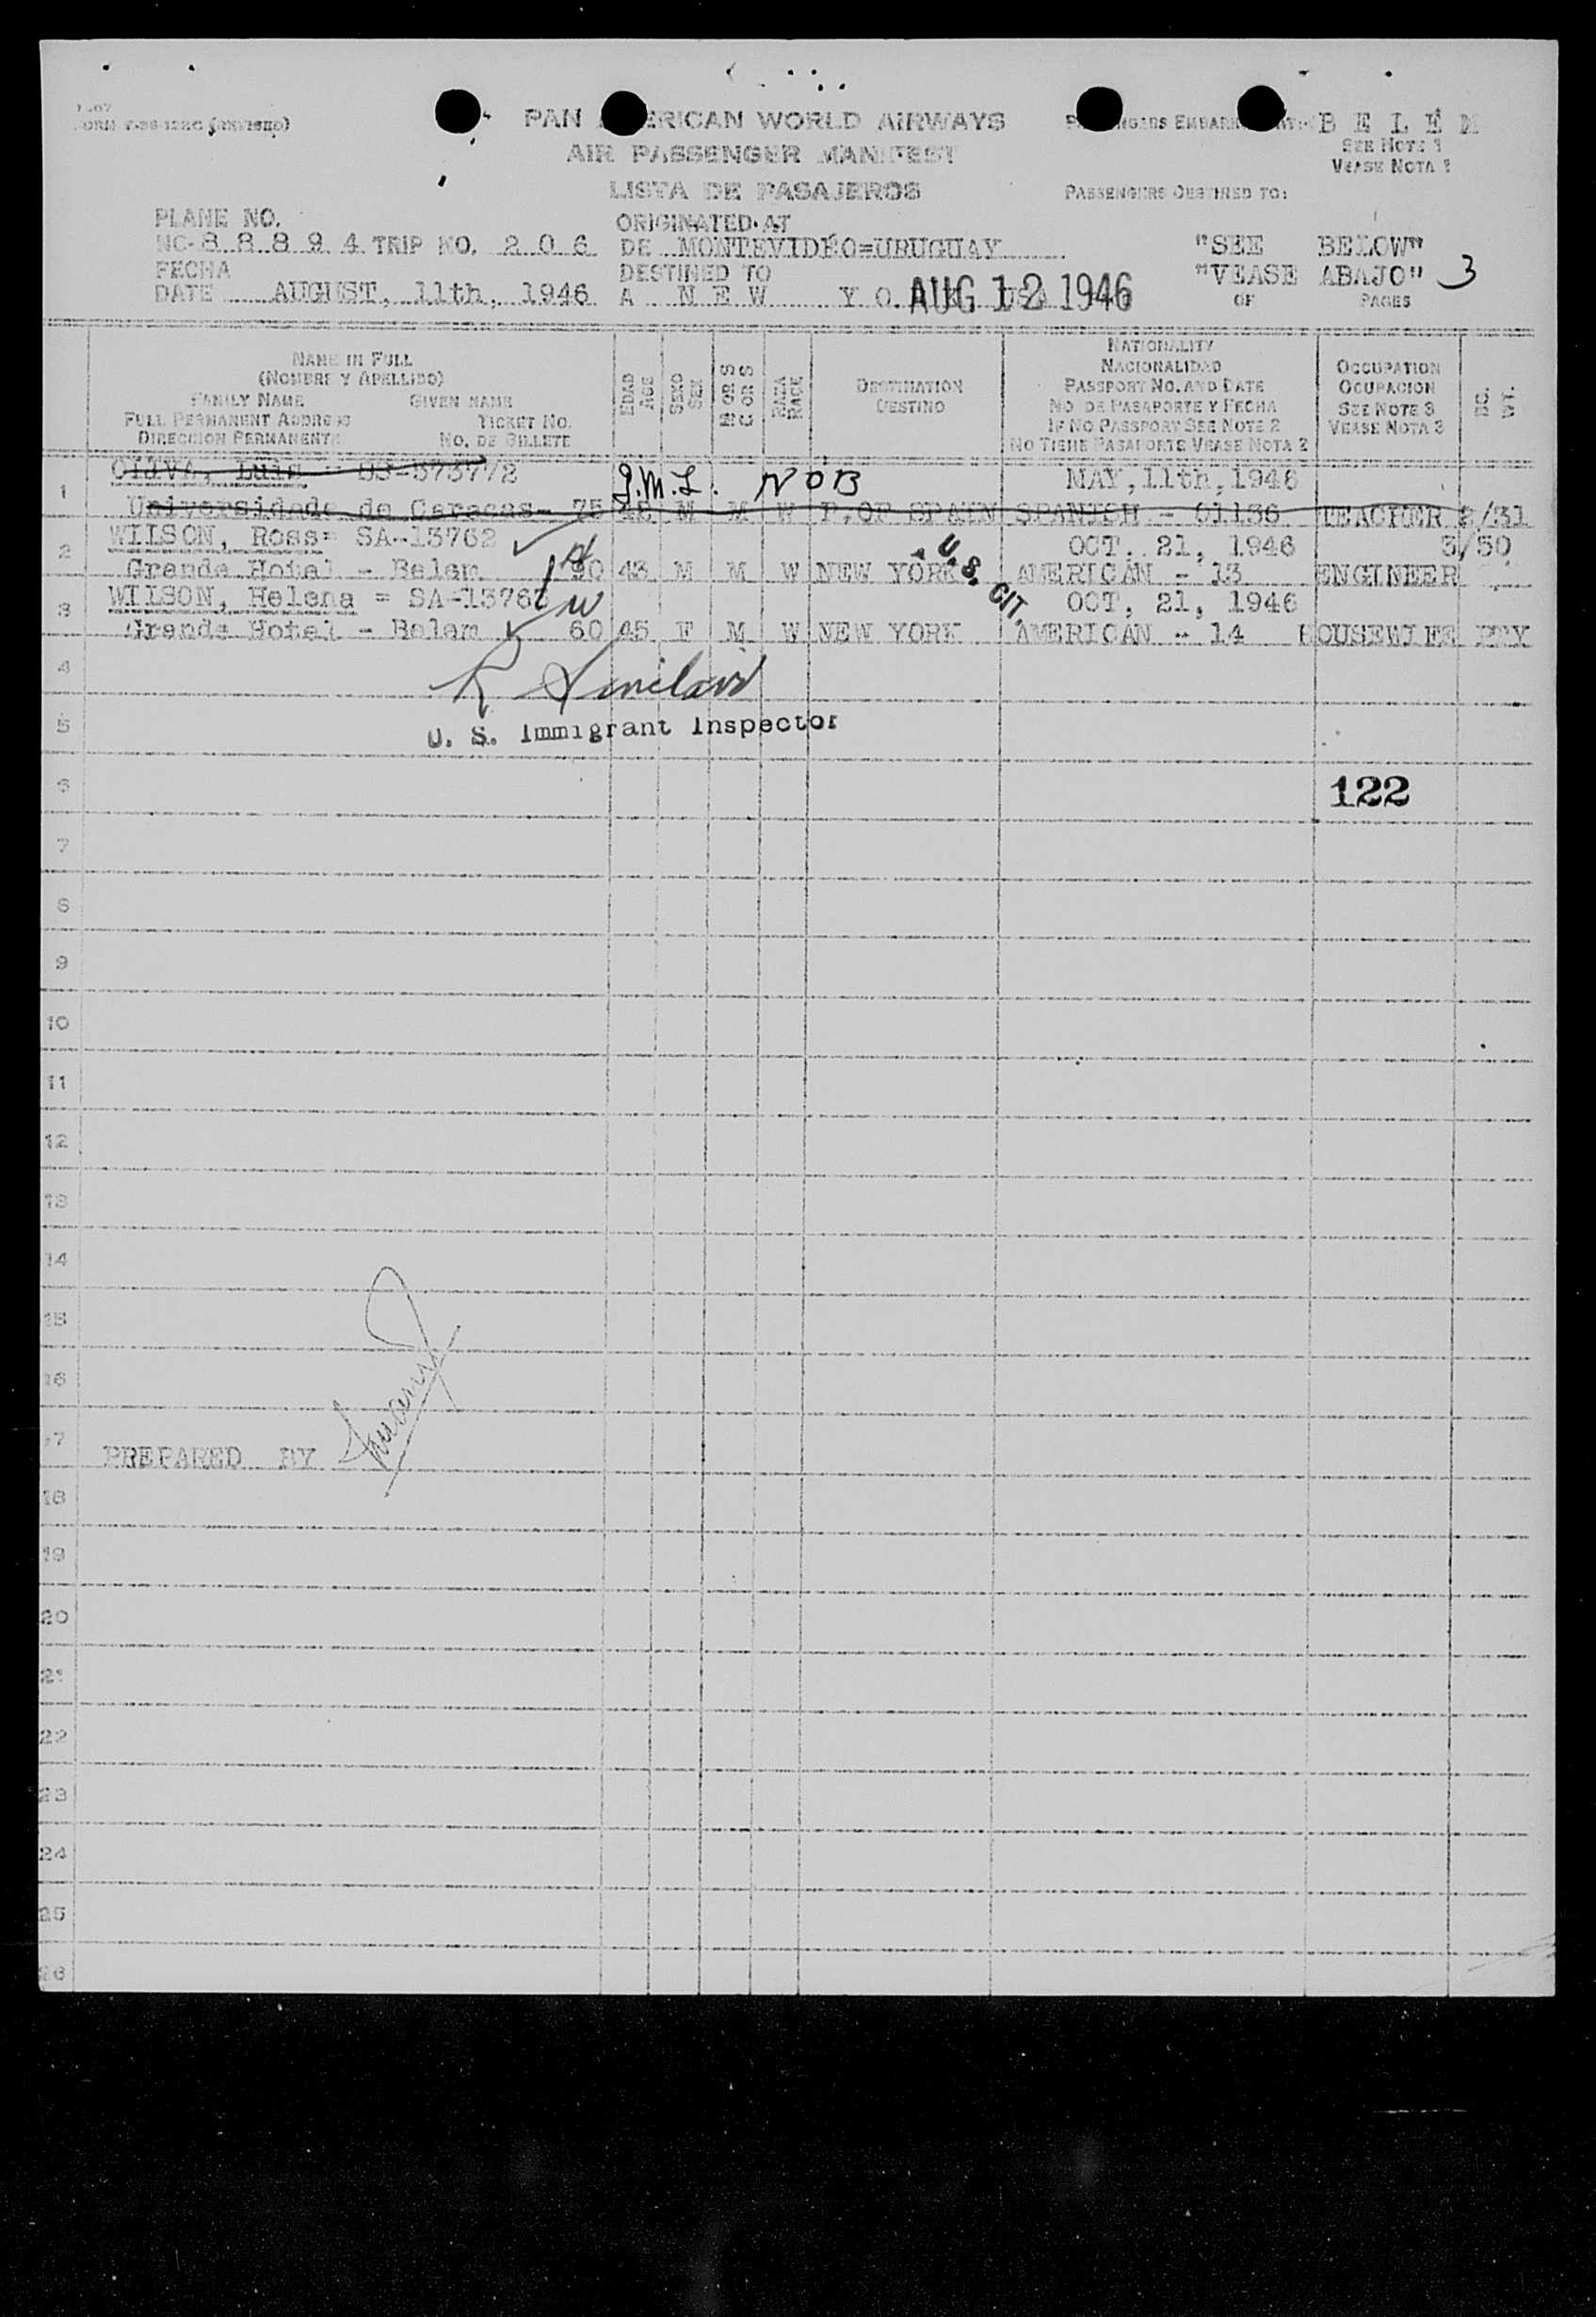 PAN AMERICAN WORLD AIRWAYS
AIR PASSENGER MANIFEST
LISTA DE PASAJEROS
B E L É M
SEE NOTE 1
VEASE NOTA 1
PASSENGERS DESTINED TO:
PLANE NO.
NC-8 8 8 9 4 TRIP NO. 2 0 6
FECHA
DATE AUGUST, 11th, 1946
ORIGINATED AT
DE MONTEVIDÉO=URUGUAY
DESTINED TO
A N E W Y O
AUG 12 1946
"SEE BELOW"
"VEASE ABAJO" 3
OF PAGES
NAME IN FULL
(NOMBRE Y APELLIDO)
FAMILY NAME GIVEN NAME
FULL PERMANENT ADDRESS TICKET NO.
DIRECCION PERMANENTE NO. DE BILLETE
EDAD AGE
SEXO SEX
M OR S
C OR S
RAZA RACE
DESTINATION
DESTINO
NATIONALITY
NACIONALIDAD
PASSPORT NO. AND DATE
NO. DE PASAPORTE Y FECHA
IF NO PASSPORT SEE NOTE 2
NO TIENE PASAPORTE VEASE NOTA 2
OCCUPATION
OCUPACION
SEE NOTE 3
VEASE NOTA 3
WT.
Luis MAY, 11th, 1946
J.M.L. NOB
1 Universidade de Caracas- 75 M M W P. OF SPAIN SPANISH - 01136 TEACHER 2/31
2 WILSON, Ross= SA-13762 OCT. 21, 1946 3/50
Grande Hotel - Belem 90 43 M M W NEW YORK AMERICAN - 13 ENGINEER
U.S. CIT.
3 WILSON, Helena = SA-1376 OCT, 21, 1946
Grande Hotel - Belem 60 45 F M W NEW YORK AMERICAN - 14 HOUSEWIFE
4 R Sinclair
5 U. S. Immigrant Inspector
6 122
7
8
9
10
11
12
13
14
15
16
17 PREPARED BY
18
19
20
21
22
23
24
25
26